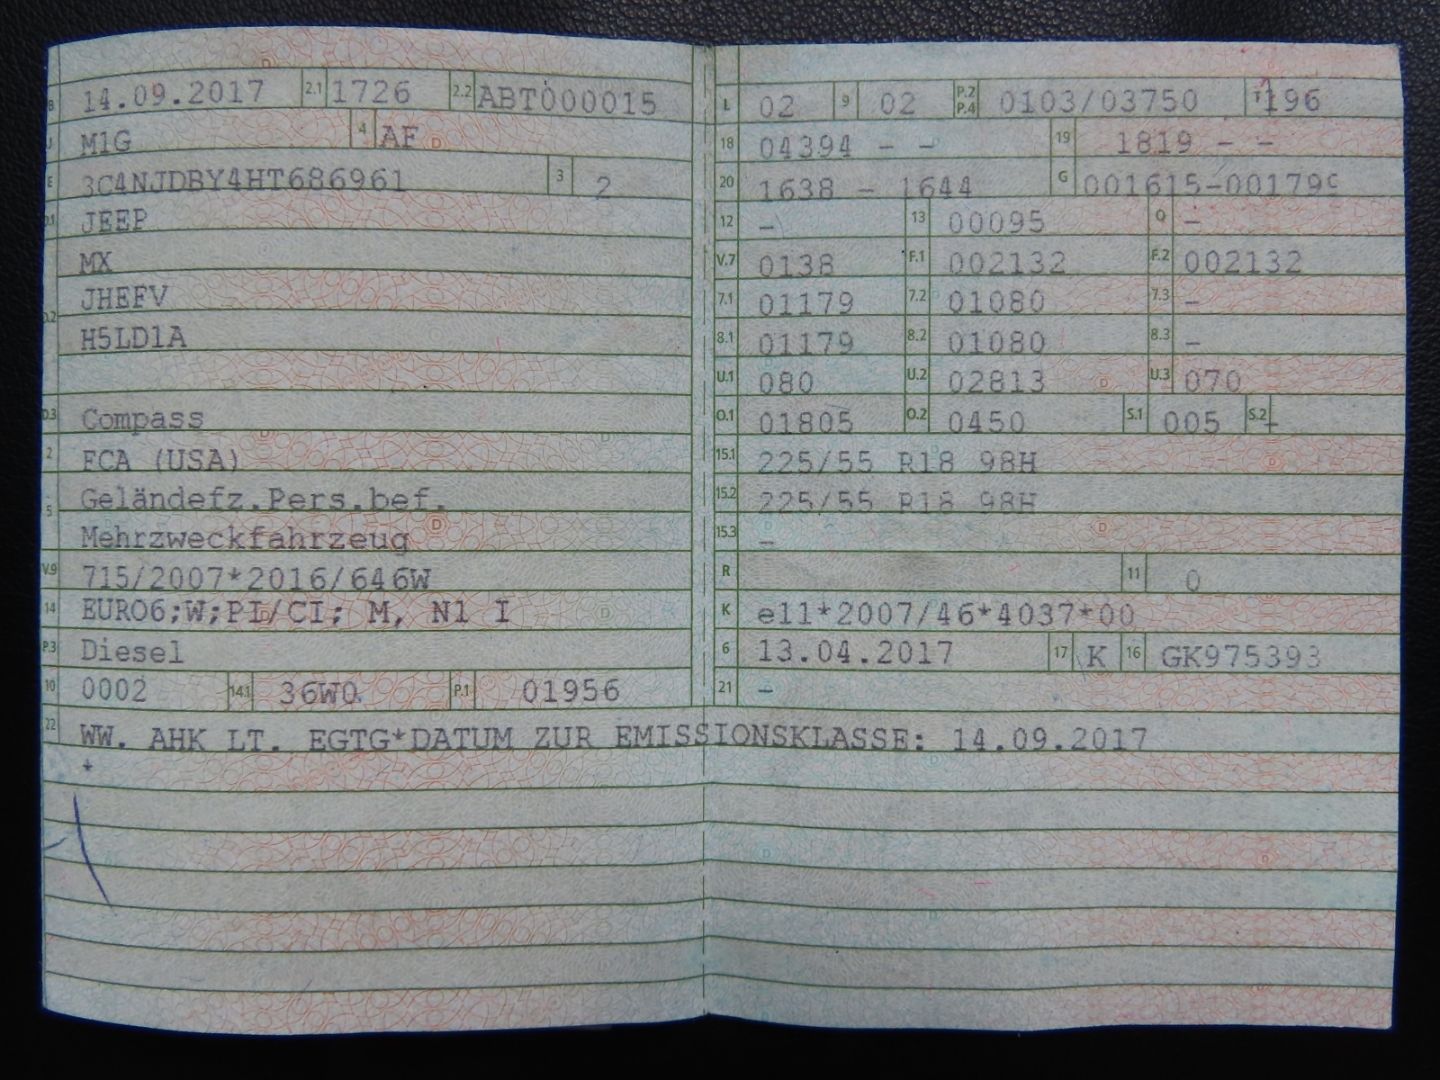 B 14.09.2017 2.1 1726 2.2 ABT000015
J M1G 4 AF
E 3C4NJDBY4HT686961 3 2
D.1 JEEP
MX
D.2 JHEFV
H5LD1A
D.3 Compass
2 FCA (USA)
5 Geländefz.Pers.bef.
Mehrzweckfahrzeug
V.9 715/2007*2016/646W
14 EURO6;W;PI/CI; M, N1 I
P.3 Diesel
10 0002 14.1 36W0 P.1 01956
L 02 9 02 P.2 P.4 0103/03750 T 196
18 04394 - - 19 1819 - -
20 1638 - 1644 G 001615-001799
12 - 13 00095 Q -
V.7 0138 F.1 002132 F.2 002132
7.1 01179 7.2 01080 7.3 -
8.1 01179 8.2 01080 8.3 -
U.1 080 U.2 02813 U.3 070
O.1 01805 O.2 0450 S.1 005 S.2 -
15.1 225/55 R18 98H
15.2 225/55 R18 98H
15.3 -
R 11 0
K e11*2007/46*4037*00
6 13.04.2017 17 K 16 GK975393
21 -
22 WW. AHK LT. EGTG*DATUM ZUR EMISSIONSKLASSE: 14.09.2017
*